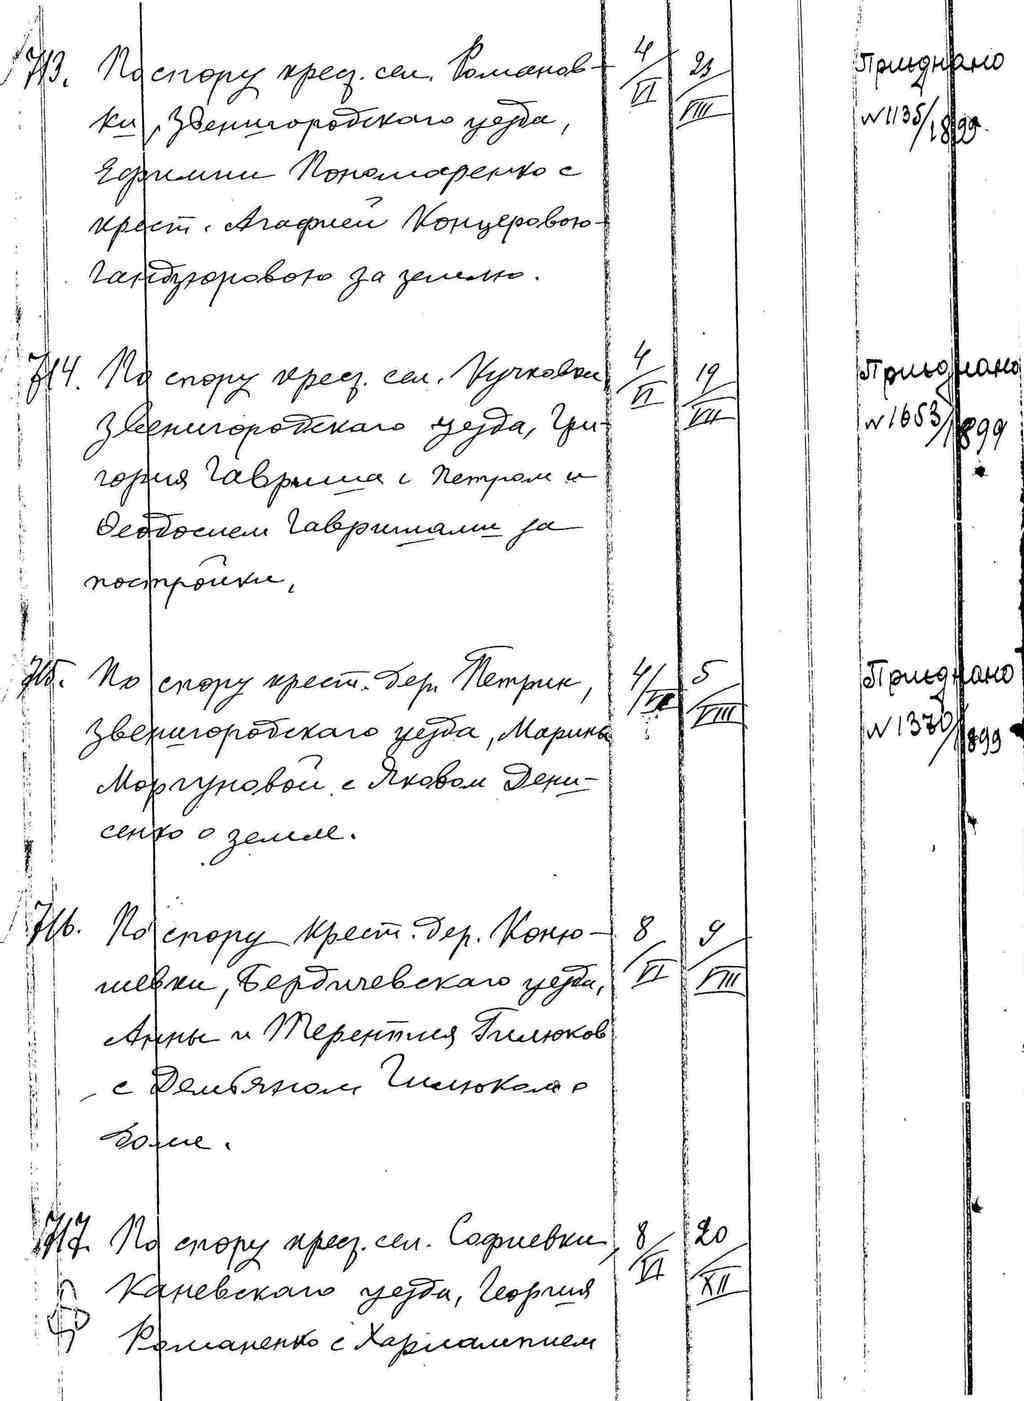 713. По спору крез. сел. Романов-
ки, Звенигородского уезда,
Ефимии Пономаренко с
крест. Агафией Концеровою-
Гандзюровою за землю.
4/VI 23/VIII
Приєднано
N 1135/1899.
714. По спору крез. сел. Кучковки
Звенигородского уезда, Гри-
гория Гавриша с Петром и
Феодосием Гавришами за
постройки.
4/VI 19/VII
Приєднано
N 1653/1899
715. По спору крест. дер. Петрик,
Звенигородского уезда, Марины
Моргуновой с Яковом Дени-
сенко о земле.
4/VI 5/VIII
Приєднано
N 1370/1899
716. По спору крест. дер. Коню-
шевки, Бердичевского уезда,
Анны и Терентия Гилюков
с Демьяном Гилюком о
доме.
8/VI 9/VIII
717. По спору крез. сел. Софиевки,
Каневского уезда, Георгия
Романенко с Харлампием
8/VI 20/XII